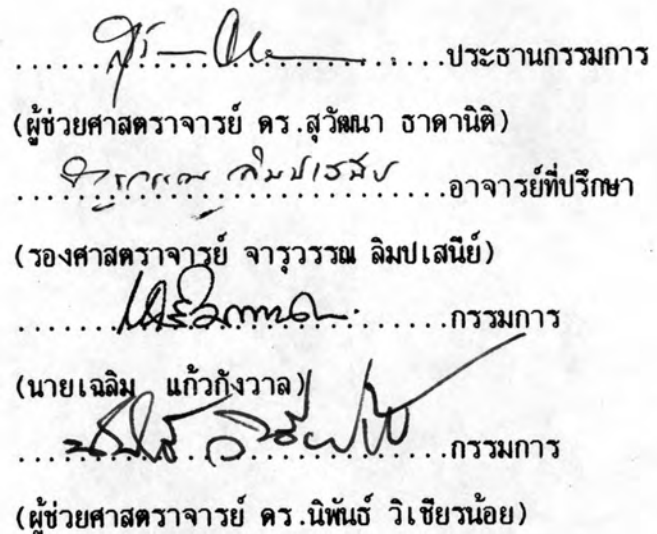 ..............................ประธานกรรมการ
(ผู้ช่วยศาสตราจารย์ ดร.สุวัฒนา ธาดานิติ)
จารุวรรณ ลิมปเสนีย์ ..............................อาจารย์ที่ปรึกษา
(รองศาสตราจารย์ จารุวรรณ ลิมปเสนีย์)
..............................กรรมการ
(นายเฉลิม แก้วกังวาล)
..............................กรรมการ
(ผู้ช่วยศาสตราจารย์ ดร.นิพันธ์ วิเชียรน้อย)